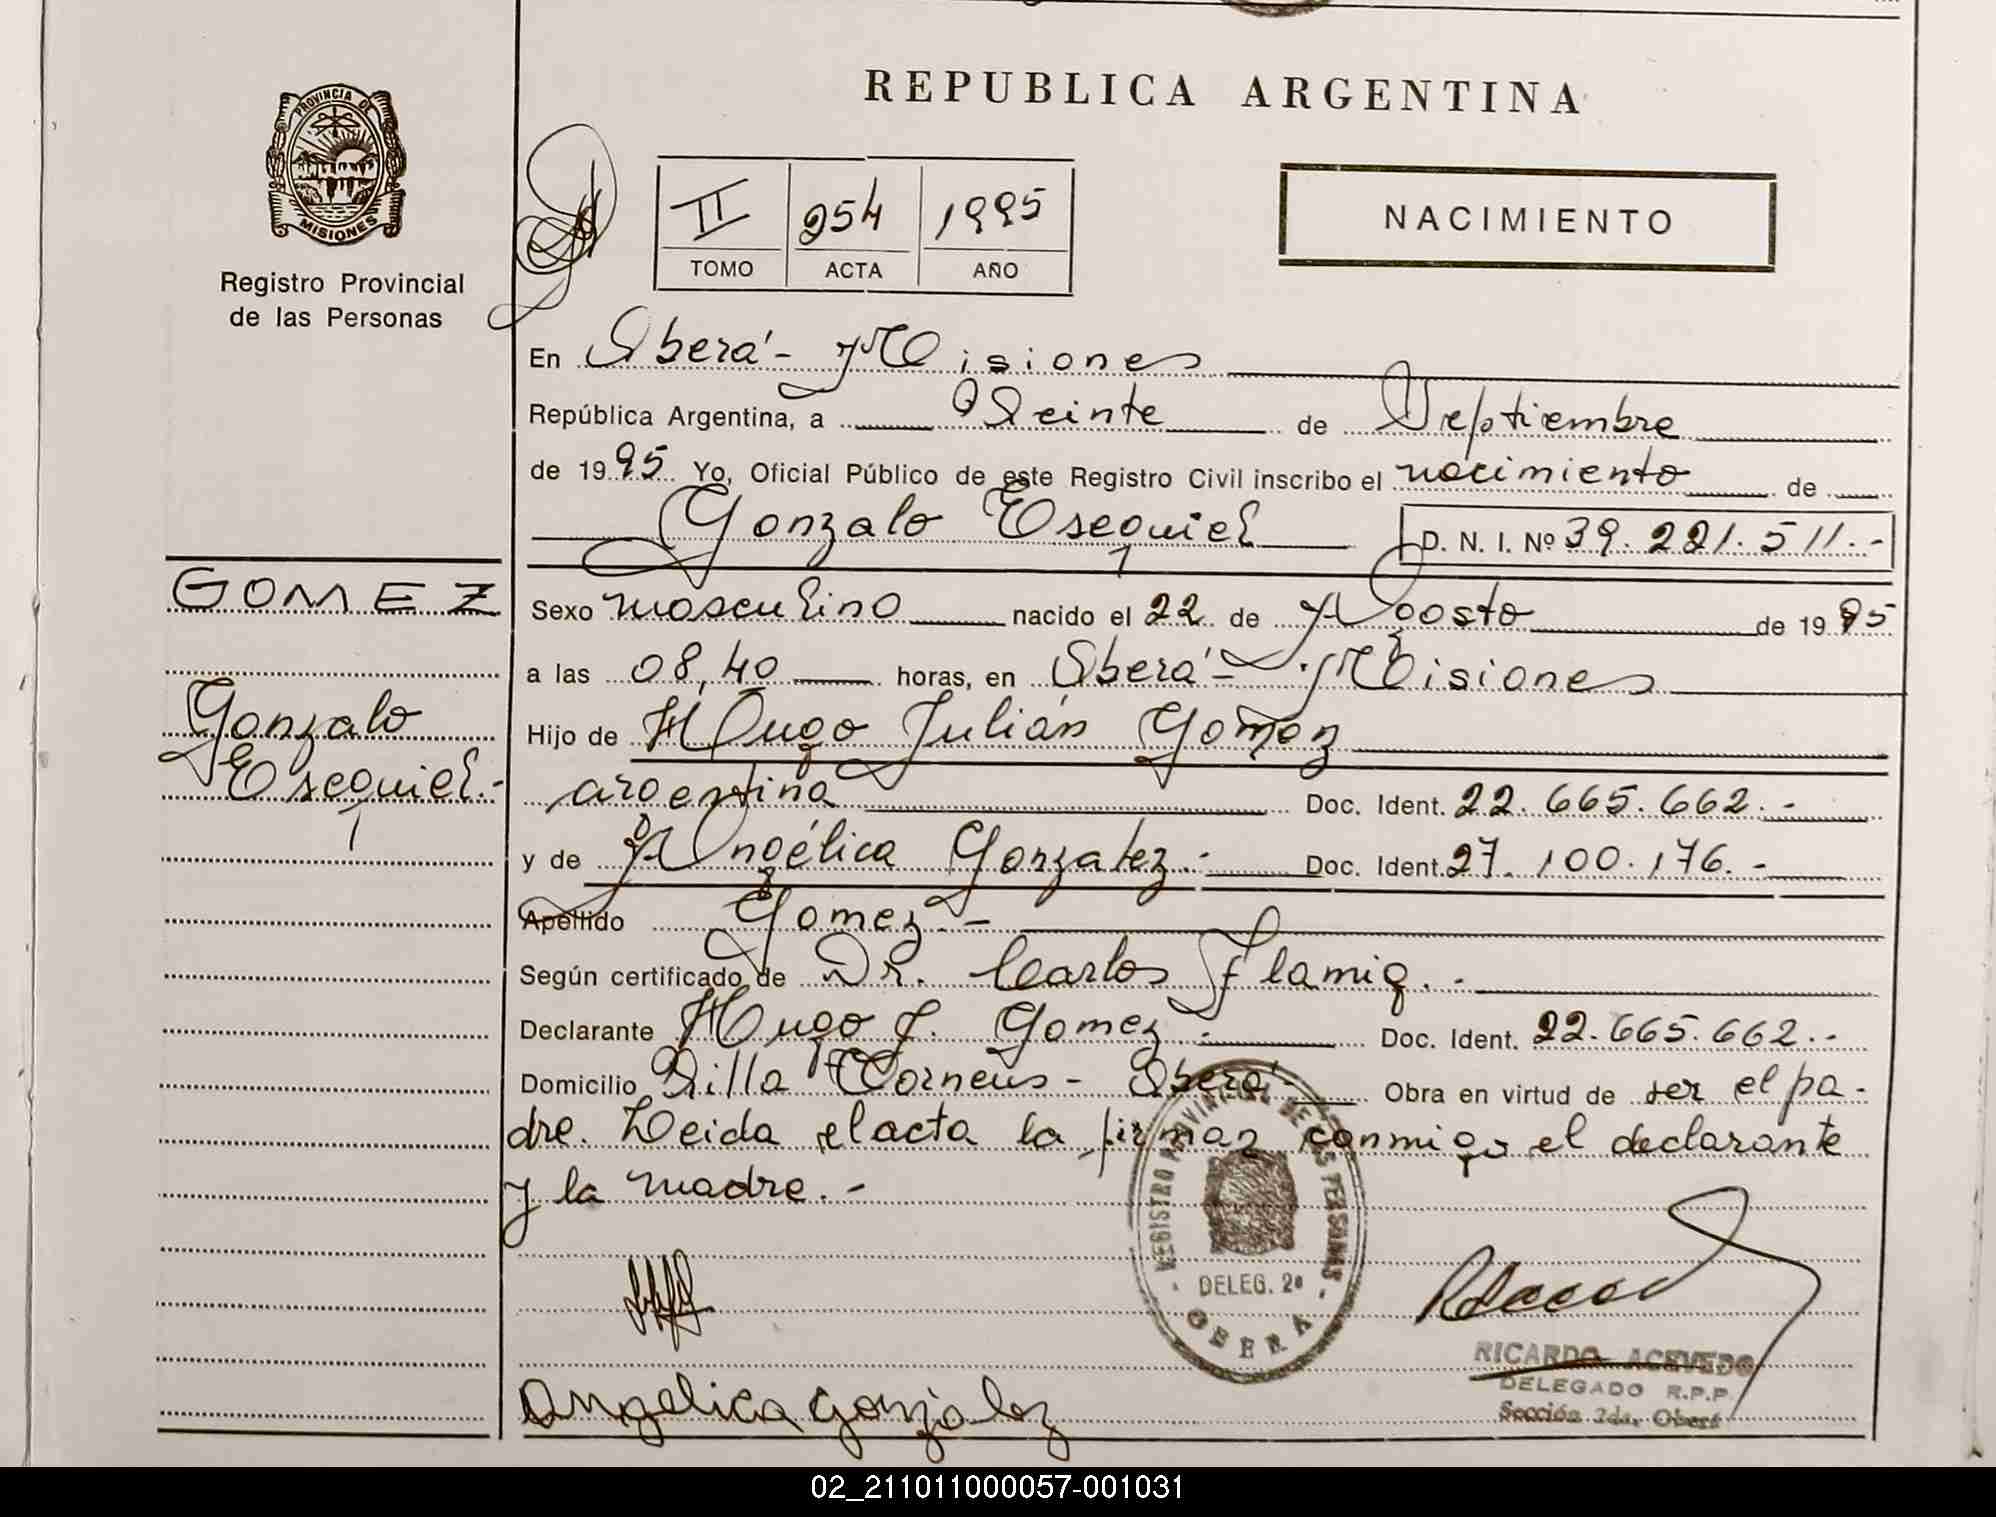 REPUBLICA ARGENTINA
PROVINCIA DE
MISIONES
Registro Provincial
de las Personas
II 954 1995
TOMO ACTA AÑO
NACIMIENTO
En Oberá - Misiones
República Argentina, a Veinte de Septiembre
de 1995 Yo, Oficial Público de este Registro Civil inscribo el nacimiento de
Gonzalo Esequiel D. N. I. Nº 39.221.511.-
GOMEZ
Gonzalo
Esequiel.-
Sexo masculino nacido el 22 de Agosto de 1995
a las 08,40 horas, en Oberá - Misiones
Hijo de Hugo Julián Gomez
argentina Doc. Ident. 22.665.662.-
y de Angélica Gonzalez.- Doc. Ident. 27.100.176.-
Apellido Gomez.-
Según certificado de Dr. Carlos Flamig.-
Declarante Hugo J. Gomez.- Doc. Ident. 22.665.662.-
Domicilio Villa - Oberá - Obra en virtud de ser el pa-
dre. Leida el acta la firman conmigo el declarante
y la madre.-
REGISTRO PROVINCIAL DE LAS PERSONAS
DELEG. 2ª
OBERA
RICARDO ACEVEDO
DELEGADO R.P.P
Sección 2da. Oberá
Angelica gonzalez
02_211011000057-001031